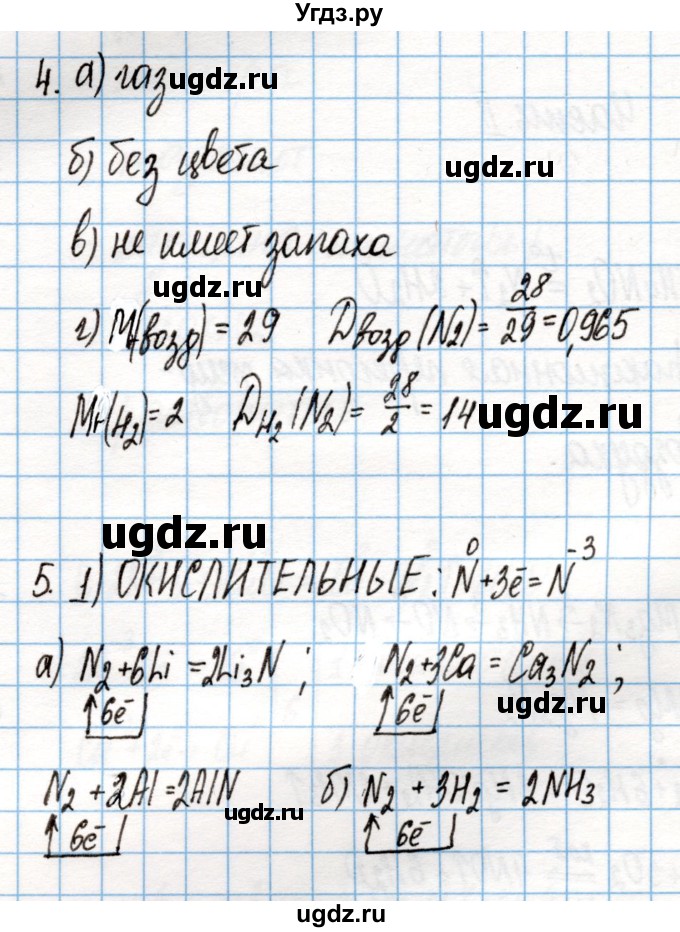 Угдз.ру
4. а) газ ugdz.ru
б) без цвета ugdz.ru
в) не имеет запаха
ugdz.ru
г) Mr(возд) = 29 Dвозд (N₂) = 28/29 = 0,965
Mr(H₂) = 2 DH₂ (N₂) = 28/2 = 14 ugdz.ru
ugdz.ru
5. 1) ОКИСЛИТЕЛЬНЫЕ: N⁰ + 3ē = N⁻³
а) N₂ + 6Li = 2Li₃N ; N₂ + 3Ca = Ca₃N₂ ;
6ē 6ē
N₂ + 2Al = 2AlN б) N₂ + 3H₂ = 2NH₃
6ē ugdz.ru 6ē
ugdz.ru